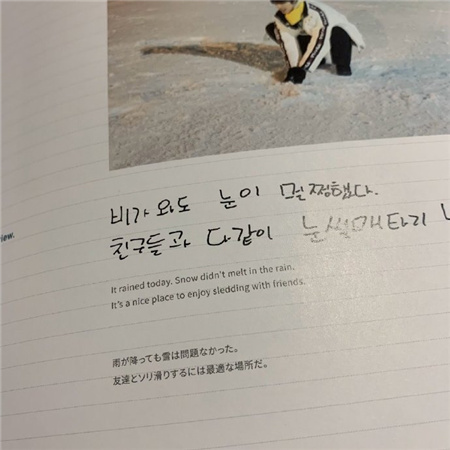 iew.
비가 와도 눈이 멀쩡했다.
친구들과 다같이 눈썰매타러
It rained today. Snow didn't melt in the rain.
It's a nice place to enjoy sledding with friends.
雨が降っても雪は問題なかった。
友達とソリ滑りするには最適な場所だ。